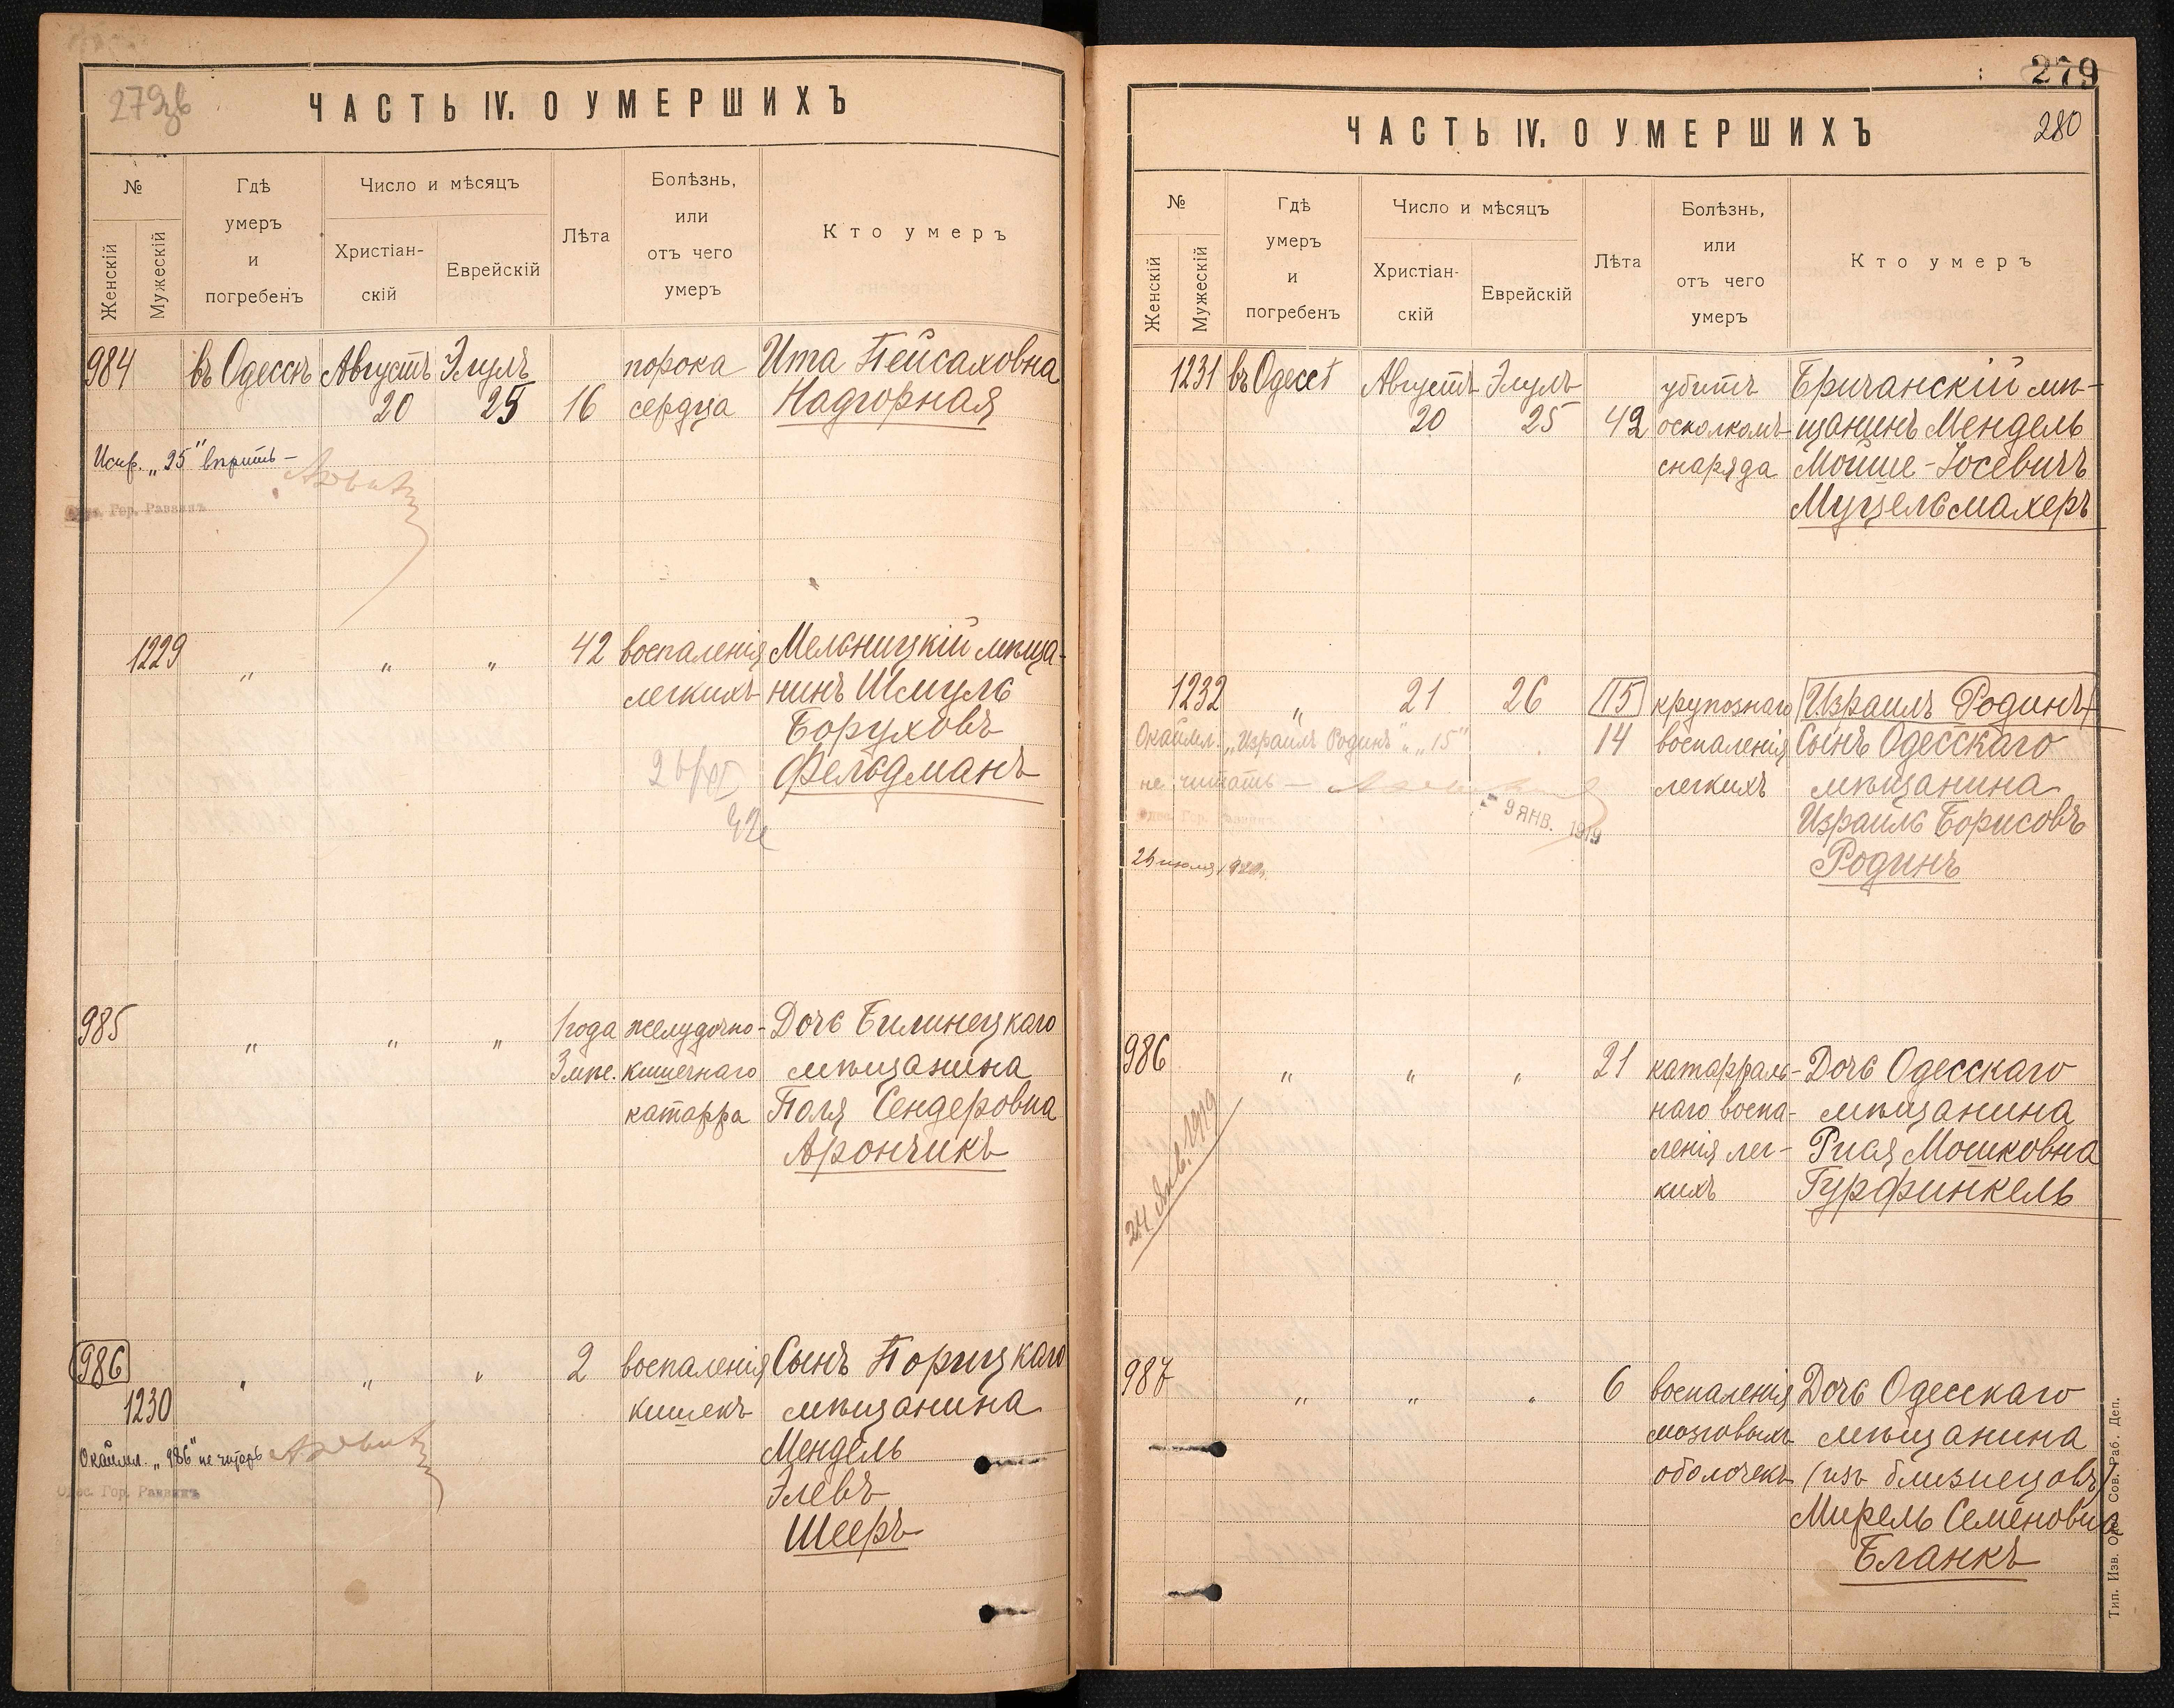 ЧАСТЬ IV. О УМЕРШИХЪ
№
Женскій
Мужескій
Гдѣ
умеръ
и
погребенъ
Число и мѣсяцъ
Христіан-
скій
Еврейскій
Лѣта
Болѣзнь,
или
отъ чего
умеръ
Кто умеръ
984 въ Одессѣ Августъ Элулъ порока Ита Пейсаховна
20 25 16 сердца Надгорная
Испр. „25" вѣрить —
Одес. Гор. Раввинъ
1229 „ „ „ 42 воспаленія Мельницкій мѣща-
легкихъ нинъ Шмуль
Боруховъ
Фельдманъ
985 „ „ „ 1 года желудочно- Дочь Билинецкаго
3 мѣс. кишечнаго мѣщанина
катарра Поля Сендеровна
Арончикъ
986 „ „ „ 2 воспаленія Сынъ Порицкаго
1230 кишекъ мѣщанина
Окаймл. „986" не читать Мендель
Одес. Гор. Раввинъ Элевъ
Шееръ
279
280
ЧАСТЬ IV. О УМЕРШИХЪ
№
Женскій
Мужескій
Гдѣ
умеръ
и
погребенъ
Число и мѣсяцъ
Христіан-
скій
Еврейскій
Лѣта
Болѣзнь,
или
отъ чего
умеръ
Кто умеръ
1231 въ Одессѣ Августъ Элулъ убитъ Бричанскій мѣ-
20 25 42 осколкомъ щанинъ Мендель
снаряда Мойше-Іосевичъ
Муцельмахеръ
1232 „ 21 26 15 крупознаго Израиль Родинъ
Окаймл. „Израиль Родинъ" и „15" 14 воспаленія Сынъ Одесскаго
не читать — легкихъ мѣщанина
Одес. Гор. Раввинъ - 9 ЯНВ. 1919 Израиль Борисовъ
Родинъ
986 „ „ „ 21 катарраль- Дочь Одесскаго
наго воспа- мѣщанина
ленія лег- Рися Мошковна
кихъ Гурфинкель
24 Янв. 1919
987 „ „ „ 6 воспаленія Дочь Одесскаго
мозговыхъ мѣщанина
оболочекъ (изъ близнецовъ)
Мирель Семеновна
Бланкъ
Тип. Изв. Од. Сов. Раб. Деп.